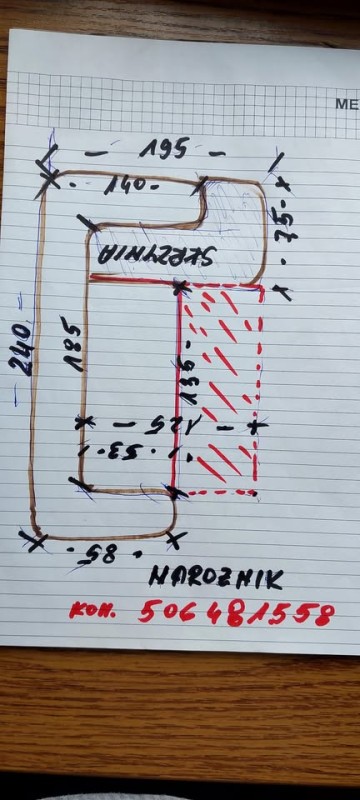 ME
- 195 -
- 140 -
- 75 -
SKRZYNIA
- 240 -
185
135 -
- 125 -
- 53 -
- 85 -
NAROZNIK
кон. 506481558